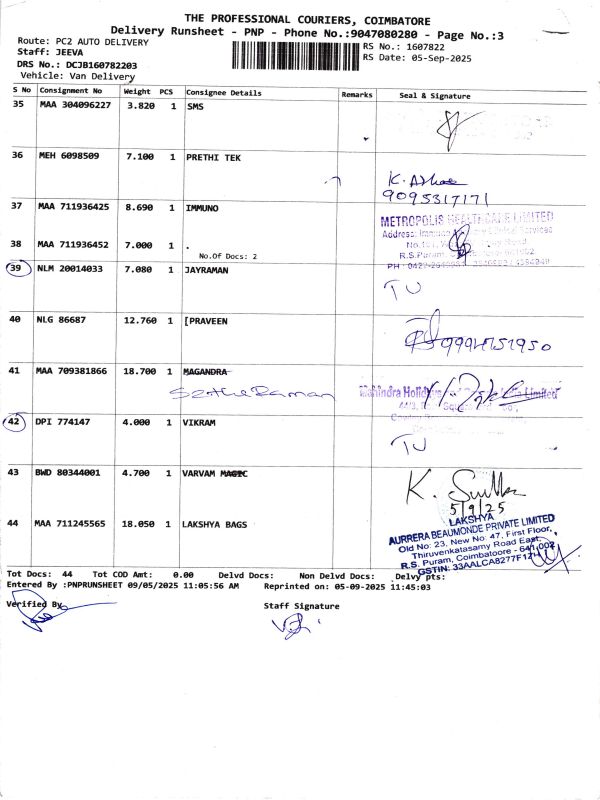 THE PROFESSIONAL COURIERS, COIMBATORE
Delivery Runsheet - PNP - Phone No.:9047080280 - Page No.:3
Route: PC2 AUTO DELIVERY
Staff: JEEVA
DRS No.: DCJB160782203
Vehicle: Van Delivery
RS No.: 1607822
RS Date: 05-Sep-2025
S No Consignment No Weight PCS Consignee Details Remarks Seal & Signature
35 MAA 304096227 3.820 1 SMS
36 MEH 6098509 7.100 1 PRETHI TEK
9095317171
37 MAA 711936425 8.690 1 IMMUNO
METROPOLIS HEALTHCARE LIMITED
38 MAA 711936452 7.000 1 .
No.Of Docs: 2
R.S.Puram,
39 NLM 20014033 7.080 1 JAYRAMAN
TU
40 NLG 86687 12.760 1 [PRAVEEN
41 MAA 709381866 18.700 1 MAGANDRA
42 DPI 774147 4.000 1 VIKRAM
TU
43 BWD 80344001 4.700 1 VARVAM MAGIC
K.
5/9/25
44 MAA 711245565 18.050 1 LAKSHYA BAGS
LAKSHYA
AURRERA BEAUMONDE PRIVATE LIMITED
Old No: 23, New No: 47, First Floor,
Thiruvenkatasamy Road East,
R.S. Puram, Coimbatoore - 641 002
GSTIN: 33AALCA8277F1ZH
Tot Docs: 44 Tot COD Amt: 0.00 Delvd Docs: Non Delvd Docs: Delvy pts:
Entered By :PNPRUNSHEET 09/05/2025 11:05:56 AM Reprinted on: 05-09-2025 11:45:03
Verified By
Staff Signature